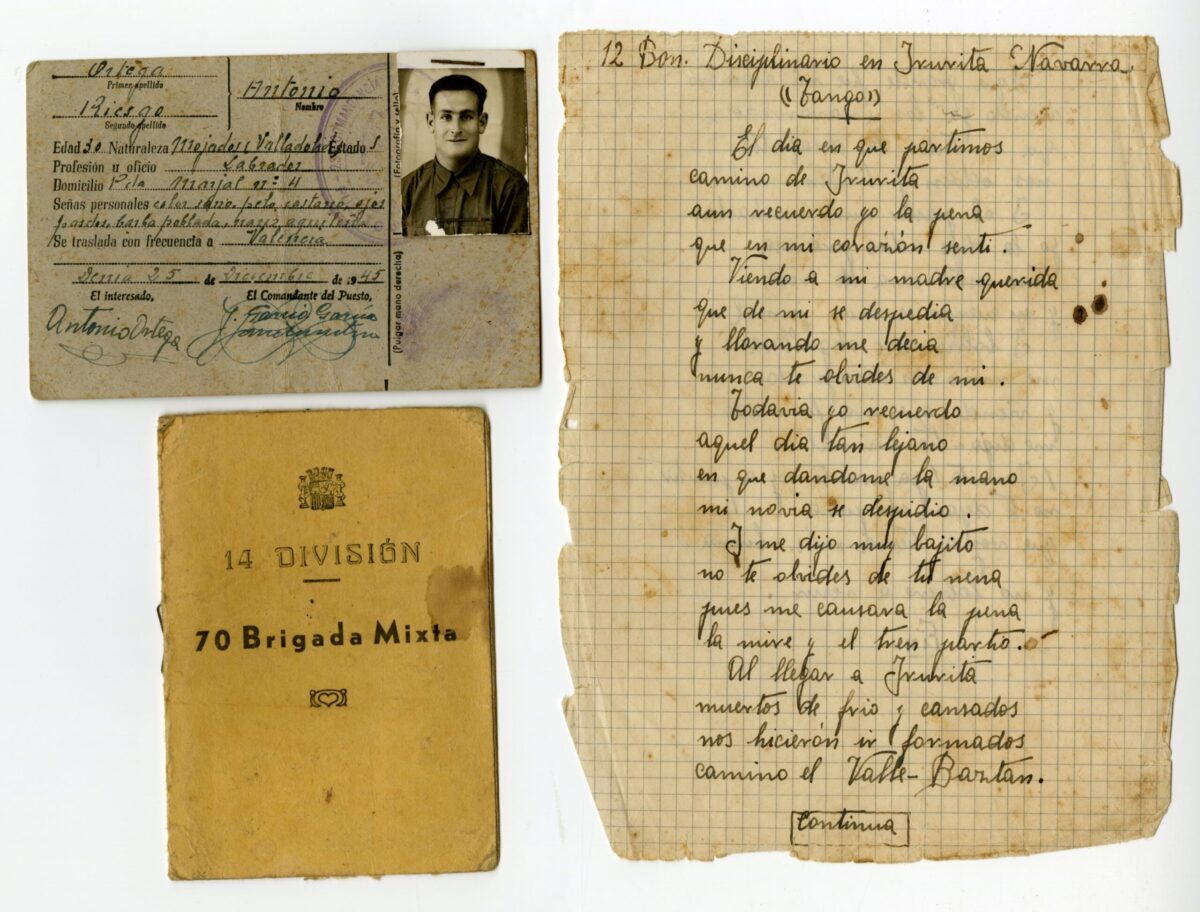 Ortega
Primer apellido
Antonio
Nombre
Riesgo
Segundo apellido
Edad 30 Naturaleza Mojados (Valladolid Estado S
Profesión u oficio Labrador
Domicilio Pda Marjal nº 4
Señas personales color sano, pelo castaño, ojos
pardos, barba poblada, nariz aguileña.
Se traslada con frecuencia a Valencia
Denia 25 de Diciembre de 1945
El interesado, El Comandante del Puesto,
Antonio Ortega
J. Garcia Garcia
(Fotografía y sello)
(Pulgar mano derecha)
14 DIVISIÓN
70 Brigada Mixta
12 Bon. Disciplinario en Irurita Navarra.
((Tango))
El dia en que partimos
camino de Irurita
aun recuerdo yo la pena
que en mi corazón senti.
Viendo a mi madre querida
que de mi se despedia
y llorando me decia
nunca te olvides de mi.
Todavia yo recuerdo
aquel dia tan lejano
en que dandome la mano
mi novia se despidio.
I me dijo muy bajito
no te olvides de tu nena
pues me causara la pena
la mire y el tren partio.
Al llegar a Irurita
muertos de frio y cansados
nos hicierón ir formados
camino el Valle-Baztan.
Continua